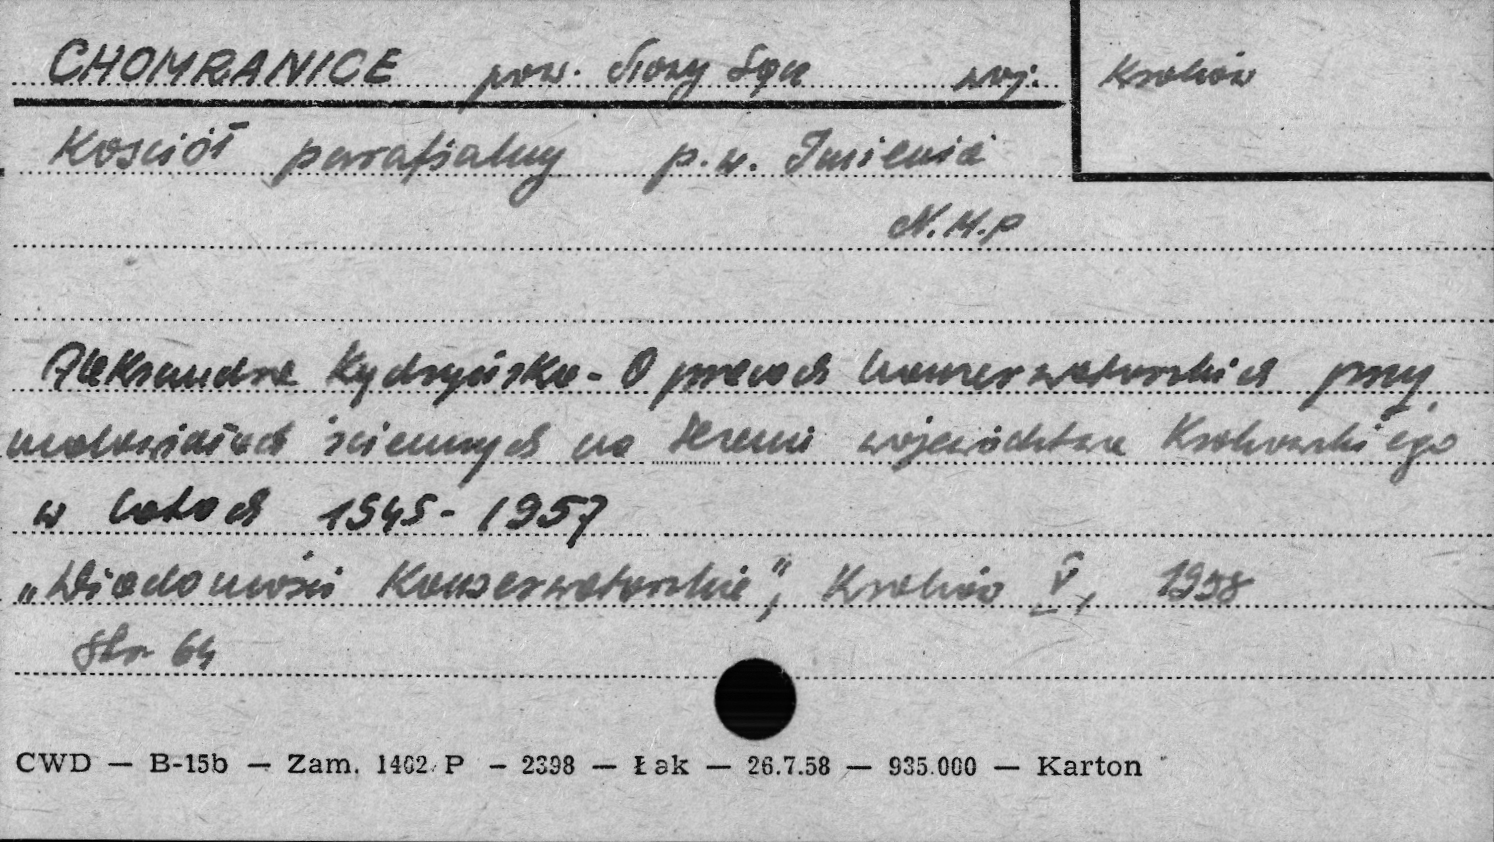 CHOMRANICE pow. Nowy Sącz woj: Kraków
Kościół parafialny p.w. Imienia
N.M.P
Aleksandra Kydryńska - O pracach konserwatorskich przy
malowidłach ściennych na terenie województwa Krakowskiego
w latach 1945-1957
„Wiadomości Konserwatorskie", Kraków V, 1958
str 64
CWD — B-15b — Zam. 1402 P — 2398 — Łak — 26.7.58 — 935.000 — Karton